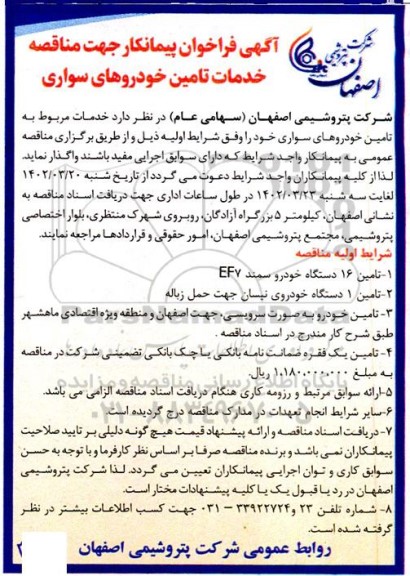 شرکت پتروشیمی
اصفهان
آگهی فراخوان پیمانکار جهت مناقصه
خدمات تامین خودروهای سواری
شرکت پتروشیمی اصفهان (سهامی عام) در نظر دارد خدمات مربوط به
تامین خودروهای سواری خود را وفق شرایط اولیه ذیل و از طریق برگزاری مناقصه
عمومی به پیمانکار واجد شرایط که دارای سوابق اجرایی مفید باشند واگذار نماید.
لذا از کلیه پیمانکاران واجد شرایط دعوت می گردد از تاریخ شنبه ۱۴۰۲/۰۳/۲۰
لغایت سه شنبه ۱۴۰۲/۰۳/۲۳ در طول ساعات اداری جهت دریافت اسناد مناقصه به
نشانی اصفهان، کیلومتر ۵ بزرگراه آزادگان، روبروی شهرک منتظری، بلوار اختصاصی
پتروشیمی، مجتمع پتروشیمی اصفهان، امور حقوقی و قراردادها مراجعه نمایند.
شرایط اولیه مناقصه
۱-تامین ۱۶ دستگاه خودرو سمند EF۷
۲-تامین ۱ دستگاه خودروی نیسان جهت حمل زباله
۳-تامین خودرو به صورت سرویسی، جهت اصفهان و منطقه ویژه اقتصادی ماهشهر
طبق شرح کار مندرج در اسناد مناقصه
۴-تامین یک فقره ضمانت نامه بانکی یا چک بانکی تضمینی شرکت در مناقصه
به مبلغ ۱،۱۸۰،۰۰۰،۰۰۰ ریال.
۵-ارائه سوابق مرتبط و رزومه کاری هنگام دریافت اسناد مناقصه الزامی می باشد.
۶-سایر شرایط انجام تعهدات در مدارک مناقصه درج گردیده است.
۷-دریافت اسناد مناقصه و ارائه پیشنهاد قیمت هیچ گونه دلیلی بر تایید صلاحیت
پیمانکاران نمی باشد و برنده مناقصه صرفا بر اساس نظر کارفرما و با توجه به حسن
سوابق کاری و توان اجرایی پیمانکاران تعیین می گردد. لذا شرکت پتروشیمی
اصفهان در رد یا قبول یک یا کلیه پیشنهادات مختار است.
۸- شماره تلفن ۲۳ و ۳۳۹۲۲۷۲۴ – ۰۳۱ جهت کسب اطلاعات بیشتر در نظر
گرفته شده است.
روابط عمومی شرکت پتروشیمی اصفهان